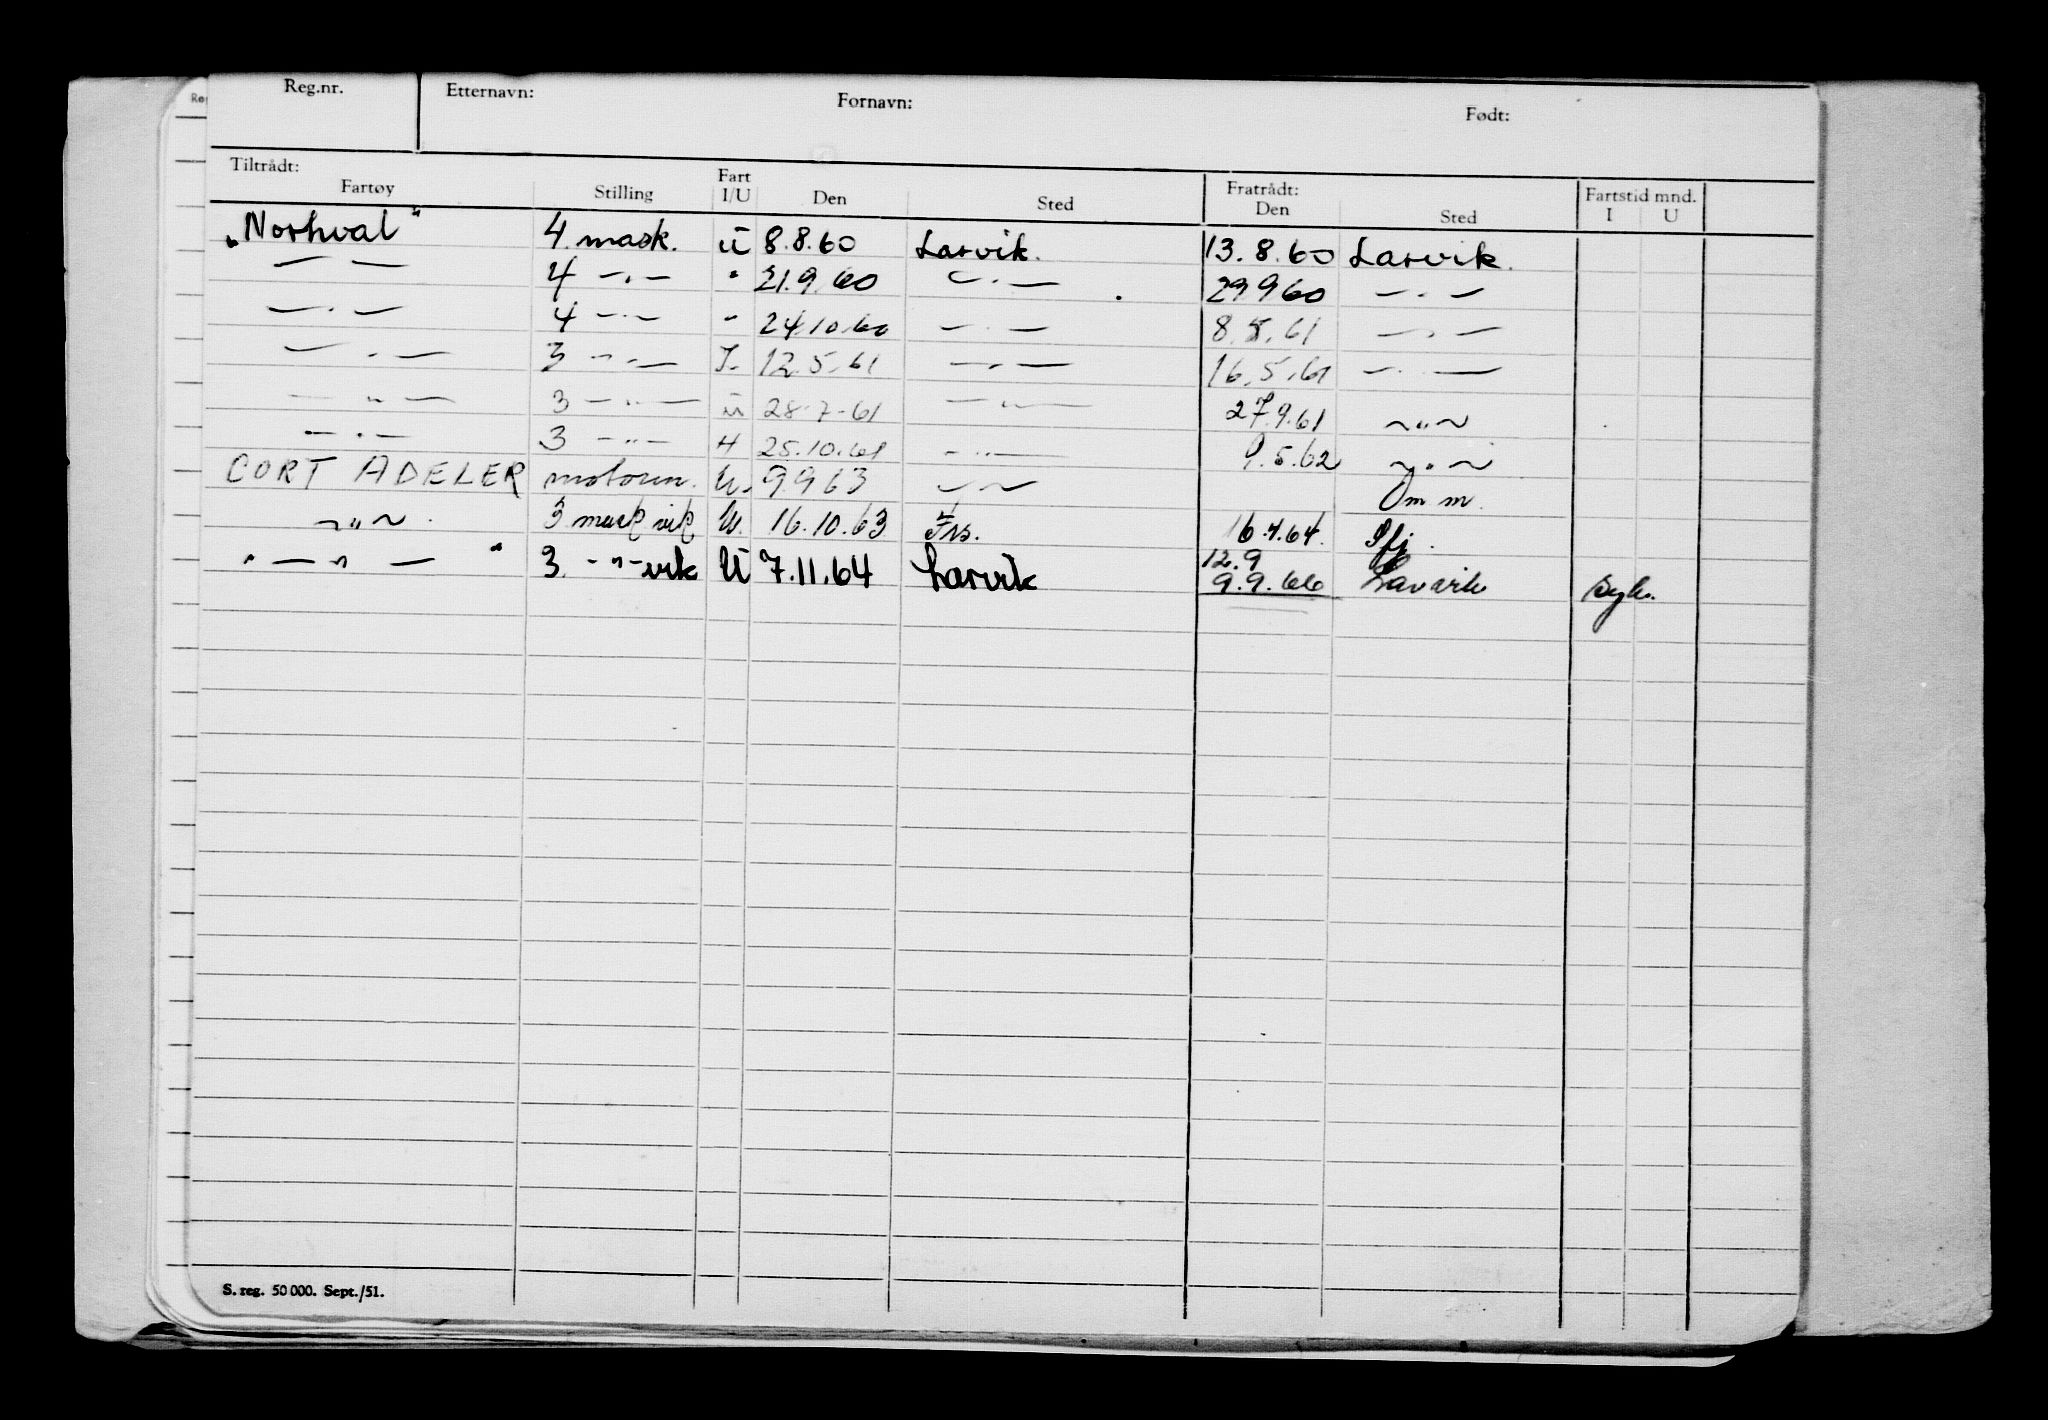 Reg.nr. Etternavn: Fornavn: Født:
Tiltrådt: Fart Fratrådt: Fartstid mnd.
Fartøy Stilling I/U Den Sted Den Sted I U
"Norhval" 4 mask. U 8.8.60 Larvik. 13.8.60 Larvik.
— — 4 —.— " 21.9.60 —.— 29 9 60 —.—
—.— 4 —.— " 24.10.60 —.— 8.5.61 —.—
—.— 3 —.— I. 12.5.61 —.— 16.5.61 —.—
—"— 3 —"— U 28-7-61 —"— 27.9.61 —"—
—.— 3 —"— 25.10.61 —"— 9.5.62 —"—
CORT ADELER motorm. U. 9 9 63 —"— Om m.
—"—. 3 mask vik U. 16.10.63 6.4.64.
" —"— " 3. —"— vik U 7.11.64 Larvik 12.9
9.9.66 Larvik syk.
S. reg. 50 000. Sept./51.